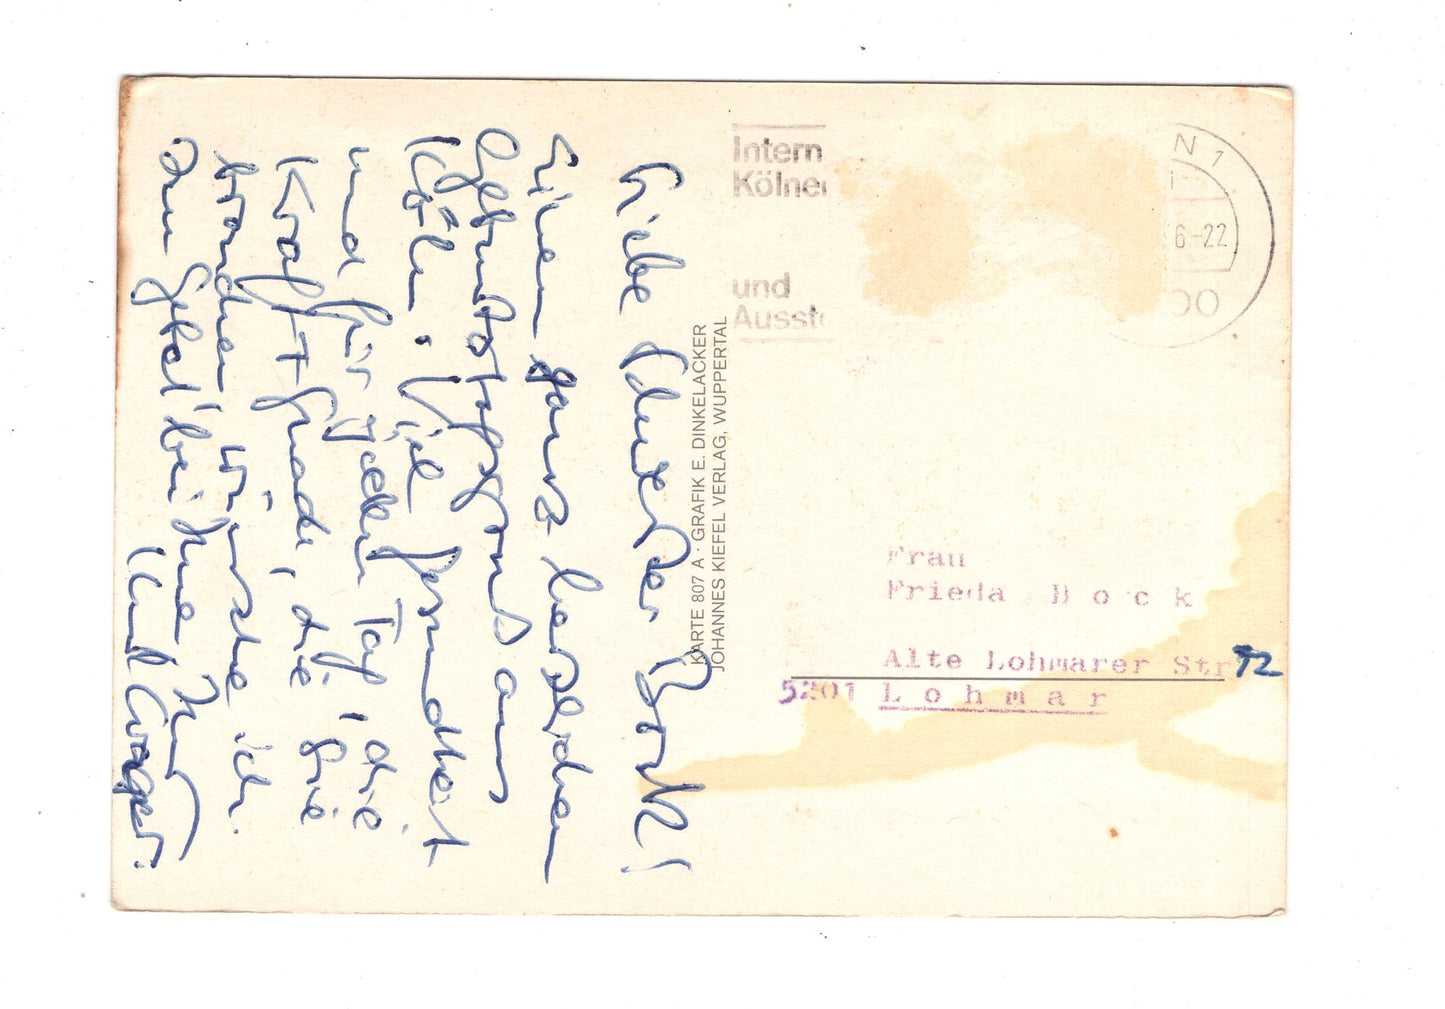 Liebe Schwester Bock!
Einen ganz herzlichen
Geburtstagsgruß aus
Köln. Viel Gesundheit
und für jeden Tag, die
Kraft + Freude, die Sie
brauchen wünsche ich.
Im Gebet bei Ihnen Ihr
KARTE 807 A · GRAFIK E. DINKELACKER
JOHANNES KIEFEL VERLAG, WUPPERTAL
Intern
Kölner
und
Ausste
N 1
6-22
00
Frau
Frieda Bock
Alte Lohmarer Str 72
5201 Lohmar